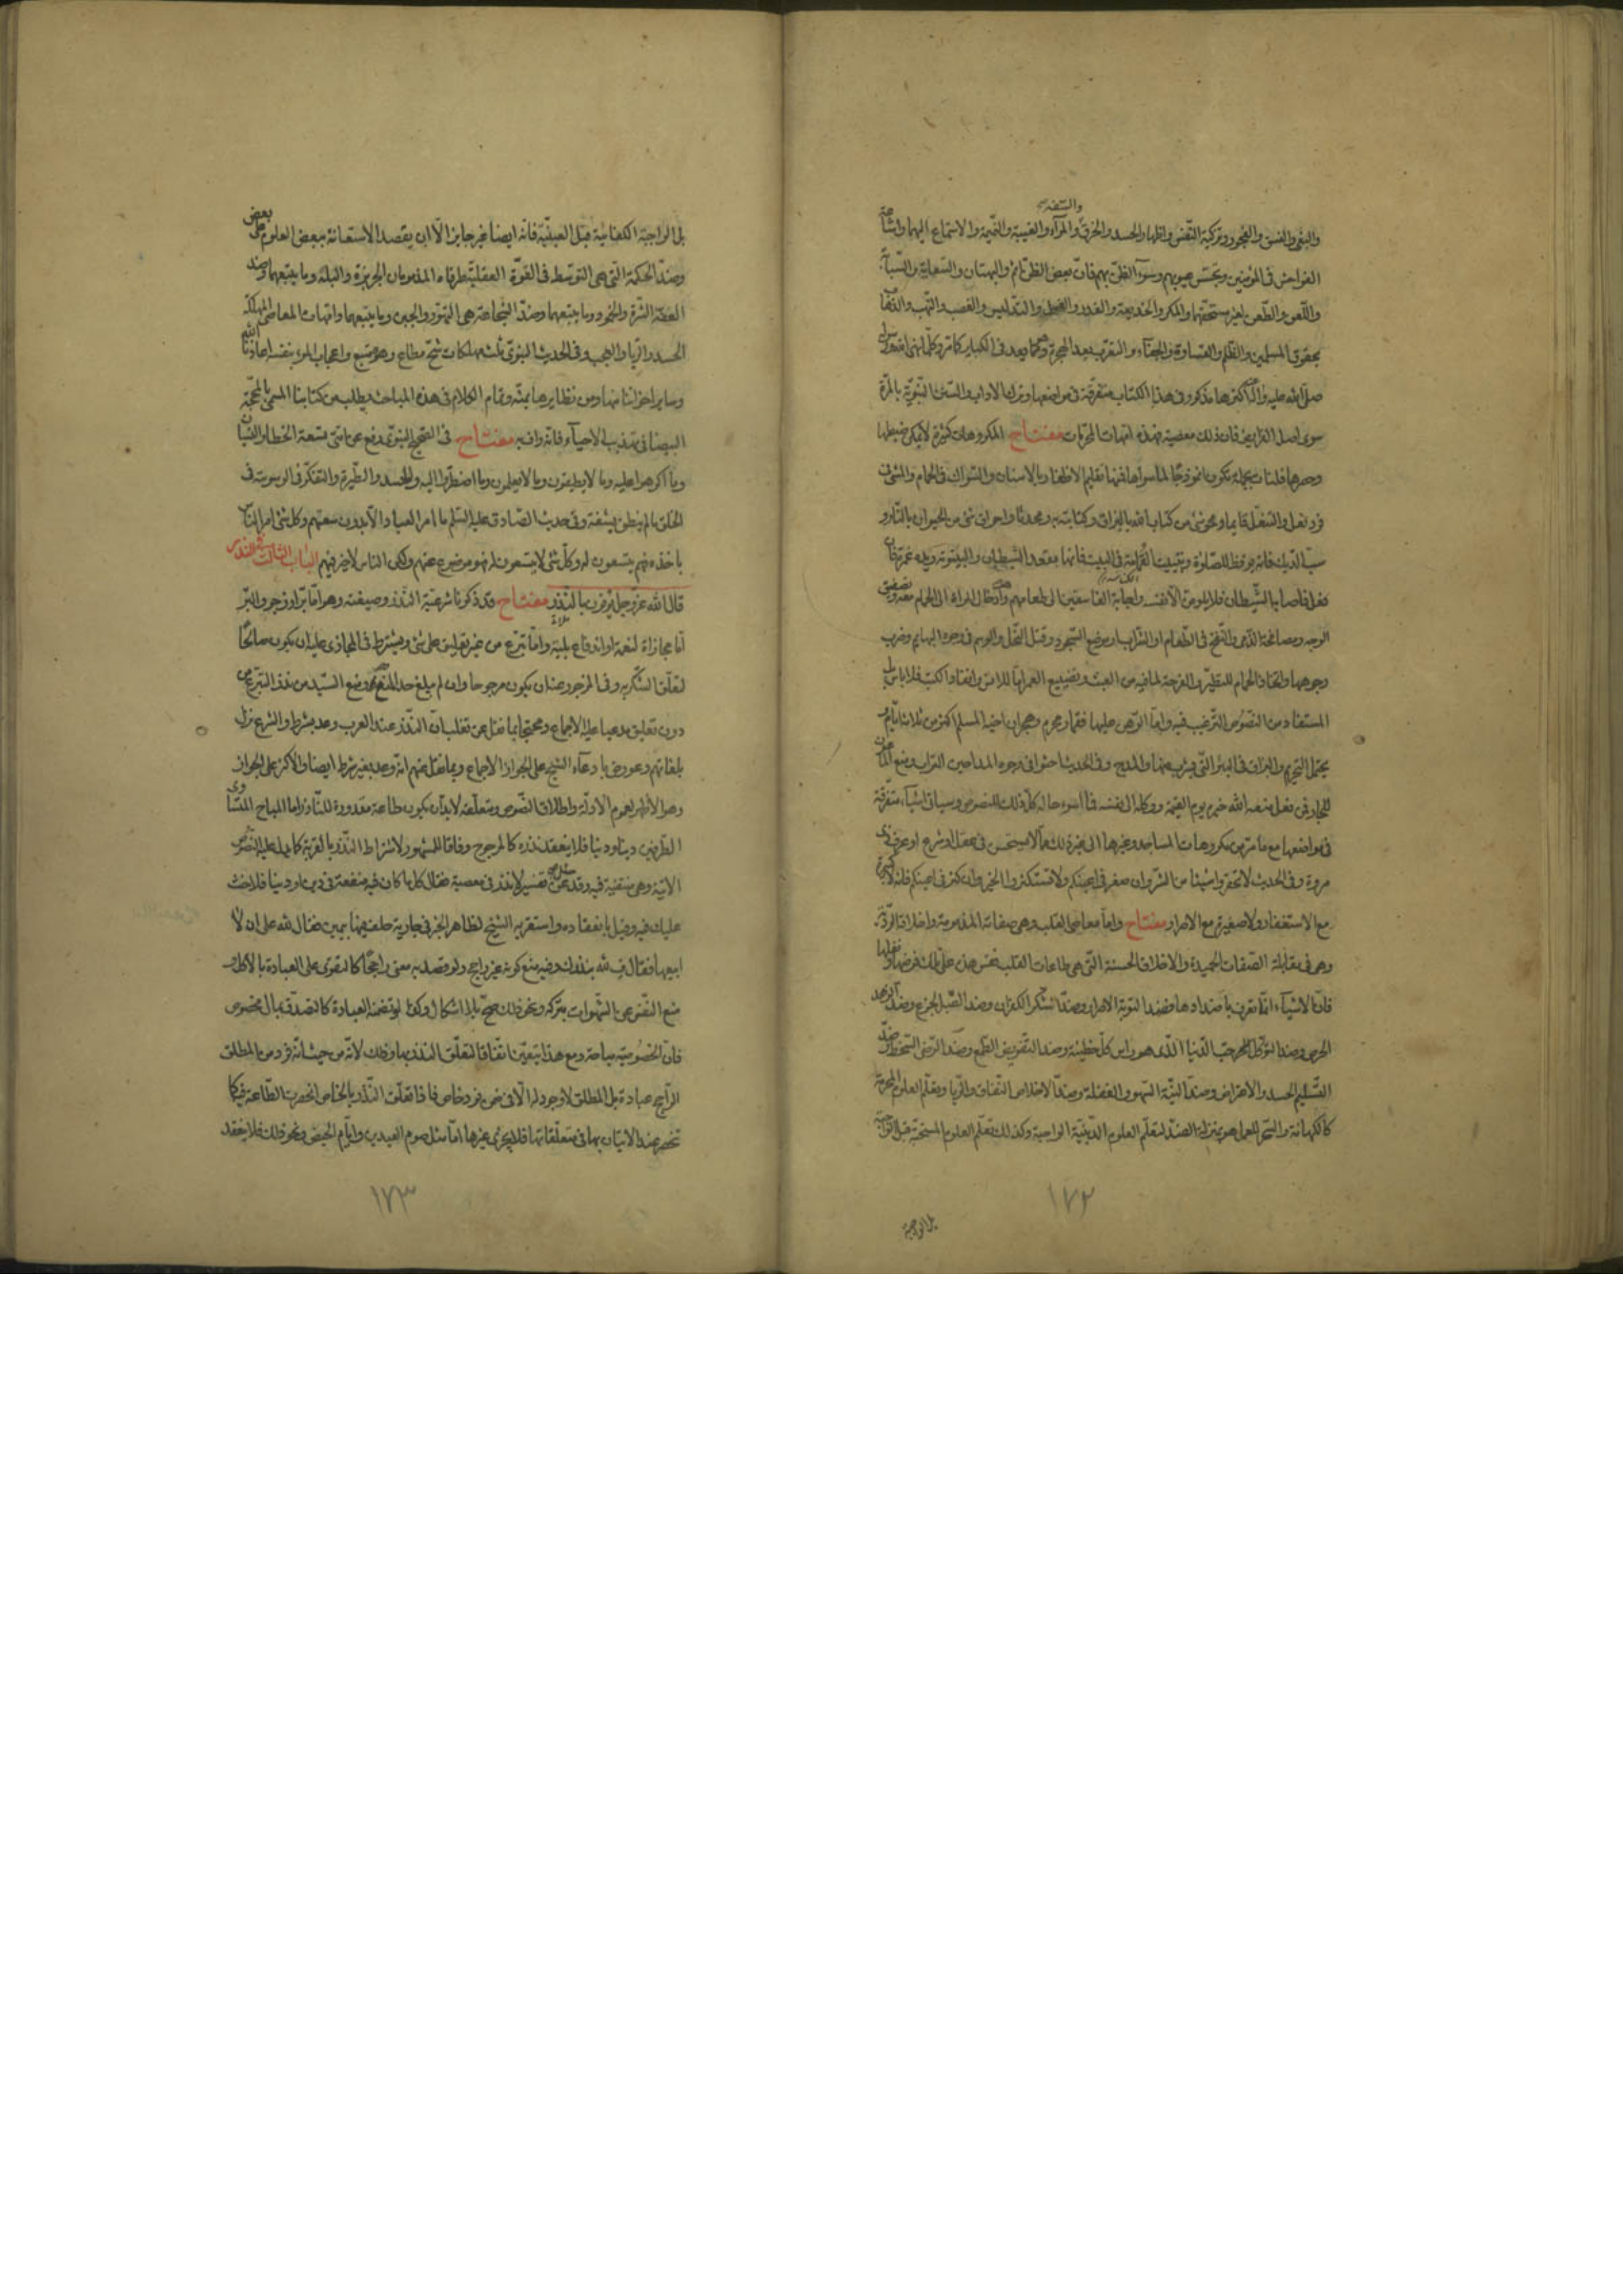 والسفه
والبغی والفسق والفجور وتزکیة النفس واظهار الحسد والخرق والمرآء والغیبة والنمیمة والاستماع الیهما واشاعة
الفواحش فی المؤمنین وتجسس عیوبهم وسوء الظن بهم فان بعض الظن اثم والبهتان والسعایة والسباب
واللعن والطعن لغیر مستحقهما والمکر والخدیعة والغدر والغش والتدلیس والغصب والنهب والذهاب
بحقوق المسلمین والظلم والقساوة والجفاء والتعرب بعد الهجرة وهما یعد فی الکبایر کما مر وکلما نهی عنه رسول
صلی الله علیه واله اکثرها مذکور فی هذا الکتاب متفرقة فی مواضعها وترک الاداب والسنن النبویة بالمرة
سوی اصل الفرایض فان ذلک معصیة فهذه امهات المحرمات مفتاح المکروهات کثیرة لا یمکن ضبطها
وحصرها فلنات بجملة تکون انموذجا لما سواها فمنها تقلیم الاظفار بالاسنان والسواک فی الحمام والمشی فی
فرد نعل والتنعل قایما ومحو شئ من کتاب الله بالبزاق وکتابته به ومحدثا واحراق شئ من الحیوان بالنار و
سب الدیک فانه یوقظ للصلوة وتبییت القمامة فی البیت فانها مقعد الشیطان والبیتوتة ویده غمرة فان
فعل فاصابه الشیطان فلا یلومن الا نفسه واجابة الفاسقین الی طعامهم وادخال المراة الی الحمام
الوجه ومصافحة الذمی والنفخ فی الطعام او الشراب او موضع السجود وقتل النحل والوسم فی وجوه البهایم وضرب
وجوهها واتخاذ الحمام للتطیر والفرجة لما فیه من العبث وتضییع العمر اما للانس وانفاذ الکتب فلا باس بل
المستفاد من النصوص الترغیب فیه واما الرهن علیها فقمار محرم وهجران اخیه المسلم اکثر من ثلاثة ایام و
یحتمل التحریم والبزاق فی البئر التی یشرب منها والمدح وفی الحدیث احثوا فی وجوه المداحین التراب ومنع الماعون
للجار فمن فعل منعه الله خیره یوم القیمة ووکله الی نفسه فما اسوء حاله کل ذلک للنصوص وسیاتی اشیاء متفرقة
فی مواضعها مع ما مر من مکروهات المساجد وغیرها الی غیر ذلک مما لا یستحسن فی عقل او شرع او عرف ذی
مروة وفی الحدیث لا تحقروا شیئا من الشر وان صغر فی اعینکم ولا تستکثروا الخیر وان کثر فی اعینکم فانه لا کبیرة
مع الاستغفار ولا صغیرة مع الاصرار مفتاح واما معاصی القلب وهی صفاته المذمومة واخلاقه الردیة
وهی فی مقابلة الصفات الحمیدة والاخلاق الحسنة التی هی طاعات القلب فقس هذه علی تلک فرضها ونفلها
فان الاشیاء انما تعرف باضدادها فضد التوبة الاصرار وضد الشکر الکفران وضد الصبر الجزع وضد الزهد
الحرص وضد التوکل حب الدنیا الذی هو راس کل خطیئة وضد التفویض الطمع وضد الرضی السخط وضد
التسلیم الحسد والاعراض وضد النیة السهو والغفلة وضد الاخلاص النفاق والریا وتعلم العلوم المحرمة
کالکهانة والسحر للعمل هو بمنزلة الضد لتعلم العلوم الدینیة الواجبة وکذلک تعلم العلوم المستحبة قبل الواجبة
١٧٢
بل الواجبة
بل الواجبة الکفائیة قبل العینیة فانه ایضا غیر جایز الا ان یقصد الاستعانة ببعض العلوم علی بعض
وضد الحکمة التی هی التوسط فی القوة العقلیة طرفاه المذمومان الجربزة والبله وما یتبعهما وضد
العفة الشره والخمود وما یتبعهما وضد الشجاعة هی التهور والجبن وما یتبعهما وامهات المعاصی المهلکة
الحسد والریا والعجب وفی الحدیث النبوی ثلث مهلکات شح مطاع وهوی متبع واعجاب المرء بنفسه اعاذنا الله
وسایر اخواننا منها ومن نظایرها بمنه وتمام الکلام فی هذه المباحث یطلب من کتابنا المسمی بالمحجة
البیضا فی تهذیب الاحیاء فانه واف به مفتاح فی الصحیح النبوی رفع عن امتی تسعة الخطا والنسیان
وما اکرهوا علیه وما لا یطیقون وما لا یعلمون وما اضطروا الیه والحسد والطیرة والتفکر فی الوسوسة فی
الخلق ما لم ینطق بشفة وفی حدیث الصادق علیه السلم ما امر العباد الا بدون سعتهم وکل شئ امر الناس
باخذه فهم یتسعون له وکل شئ لا یتسعون له فهو موضوع عنهم ولکن الناس لا خیر فیهم الباب الثالث فی النذر
قال الله عز وجل یوفون بالنذر مفتاح قد ذکرنا شرعیة النذر وصیغته وهو اما بر او زجر والبر
اما مجازاة لنعمة او اندفاع بلیة واما تبرع من غیر تعلیق علی شئ ویشترط فی المجازی علیه ان یکون صالحا
لتعلق الشکر به وفی المزجور عنه ان یکون مرجوحا وان لم یبلغ حد المنع ومنع السید من نذر التبرع
دون تعلیق مدعیا علیه الاجماع ومحتجا بما نقل عن ثعلب ان النذر عند العرب وعد بشرط والشرع نزل
بلغاتهم وعورض بادعاء الشیخ علی الجواز الاجماع وبما نقل عنهم انه وعد بغیر شرط ایضا والاکثر علی الجواز
وهو الاظهر لعموم الادلة واطلاق النصوص ومتعلقه لا بد ان یکون طاعة مقدورة للناذر اما المباح المتساوی
الطرفین دینا ودنیا فلا ینعقد نذره کالمرجوح وفاقا للمشهور لاشتراط النذر بالقربة کما یدل علیه النصوص
الآتیة وهی منتفیة فیه وقد سئل عن تفسیر لا نذر فی معصیة فقال کل ما کان فیه منفعة فی دین او دنیا فلا حنث
علیک فیه وقیل بانعقاده واستقربه الشیخ لظاهر الخبر فی جاریة حلف فیها بیمین فقال لله علی ان لا
ابیعها فقال ف لله بنذرک وفیه منع کونه غیر راجح ولو قصد به معنی راجحا کالتقوی علی العبادة بالاکل و
منع النفس عن الشهوات بترکه ونحو ذلک صح بلا اشکال وکذا لو تضمنه العبادة کالتصدق بمال مخصوص
فان الخصوصیة مباحة ومع هذا یتعین اتفاقا لتعلق النذر بها وذلک لانه من حیث انه فرد من المطلق
الراجح عبادة بل المطلق لا وجود له الا فی ضمن فرد خاص فاذا تعلق النذر بالخاص انحصرت الطاعة فیه کما
تنحصر عند الاتیان بها فی متعلقاتها فلا یجزی غیرها اما مثل صوم العیدین وایام الحیض ونحو ذلک فلا ینعقد
١٧٣